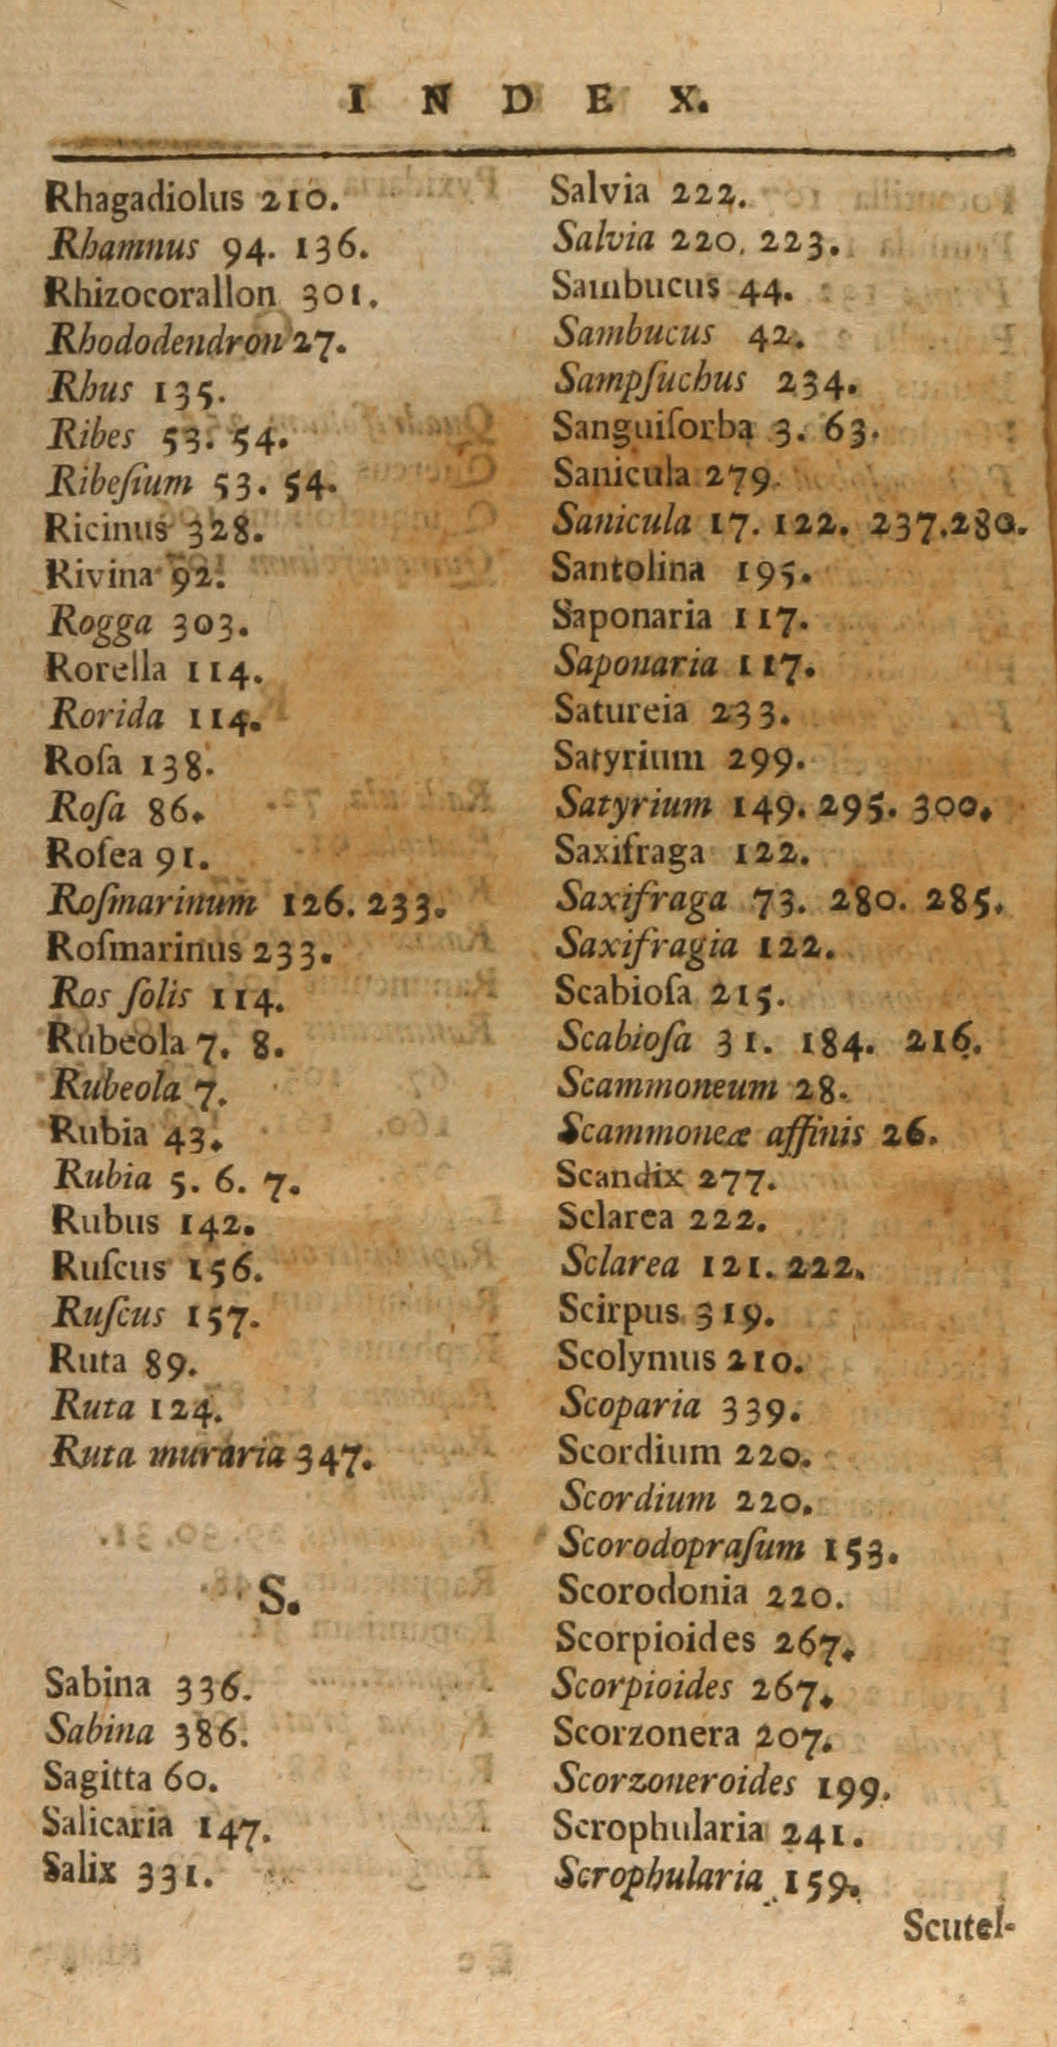 INDEX.
Rhagadiolus 210.
Rhamnus 94. 136.
Rhizocorallon 301.
Rhododendron 27.
Rhus 135.
Ribes 53. 54.
Ribeſium 53. 54.
Ricinus 328.
Rivina 92.
Rogga 303.
Rorella 114.
Rorida 114.
Roſa 138.
Roſa 86.
Roſea 91.
Roſmarinum 126. 233.
Roſmarinus 233.
Ros ſolis 114.
Rubeola 7. 8.
Rubeola 7.
Rubia 43.
Rubia 5. 6. 7.
Rubus 142.
Ruſcus 156.
Ruſcus 157.
Ruta 89.
Ruta 124.
Ruta muraria 347.
S.
Sabina 336.
Sabina 386.
Sagitta 60.
Salicaria 147.
Salix 331.
Salvia 222.
Salvia 220. 223.
Sambucus 44.
Sambucus 42.
Sampſuchus 234.
Sanguiſorba 3. 63.
Sanicula 279.
Sanicula 17. 122. 237. 280.
Santolina 195.
Saponaria 117.
Saponaria 117.
Satureia 233.
Satyrium 299.
Satyrium 149. 295. 300.
Saxifraga 122.
Saxifraga 73. 280. 285.
Saxifragia 122.
Scabioſa 215.
Scabioſa 31. 184. 216.
Scammoneum 28.
Scammoneæ affinis 26.
Scandix 277.
Sclarea 222.
Sclarea 121. 222.
Scirpus 319.
Scolymus 210.
Scoparia 339.
Scordium 220.
Scordium 220.
Scorodopraſum 153.
Scorodonia 220.
Scorpioides 267.
Scorpioides 267.
Scorzonera 207.
Scorzoneroides 199.
Scrophularia 241.
Scrophularia 159.
Scutel-